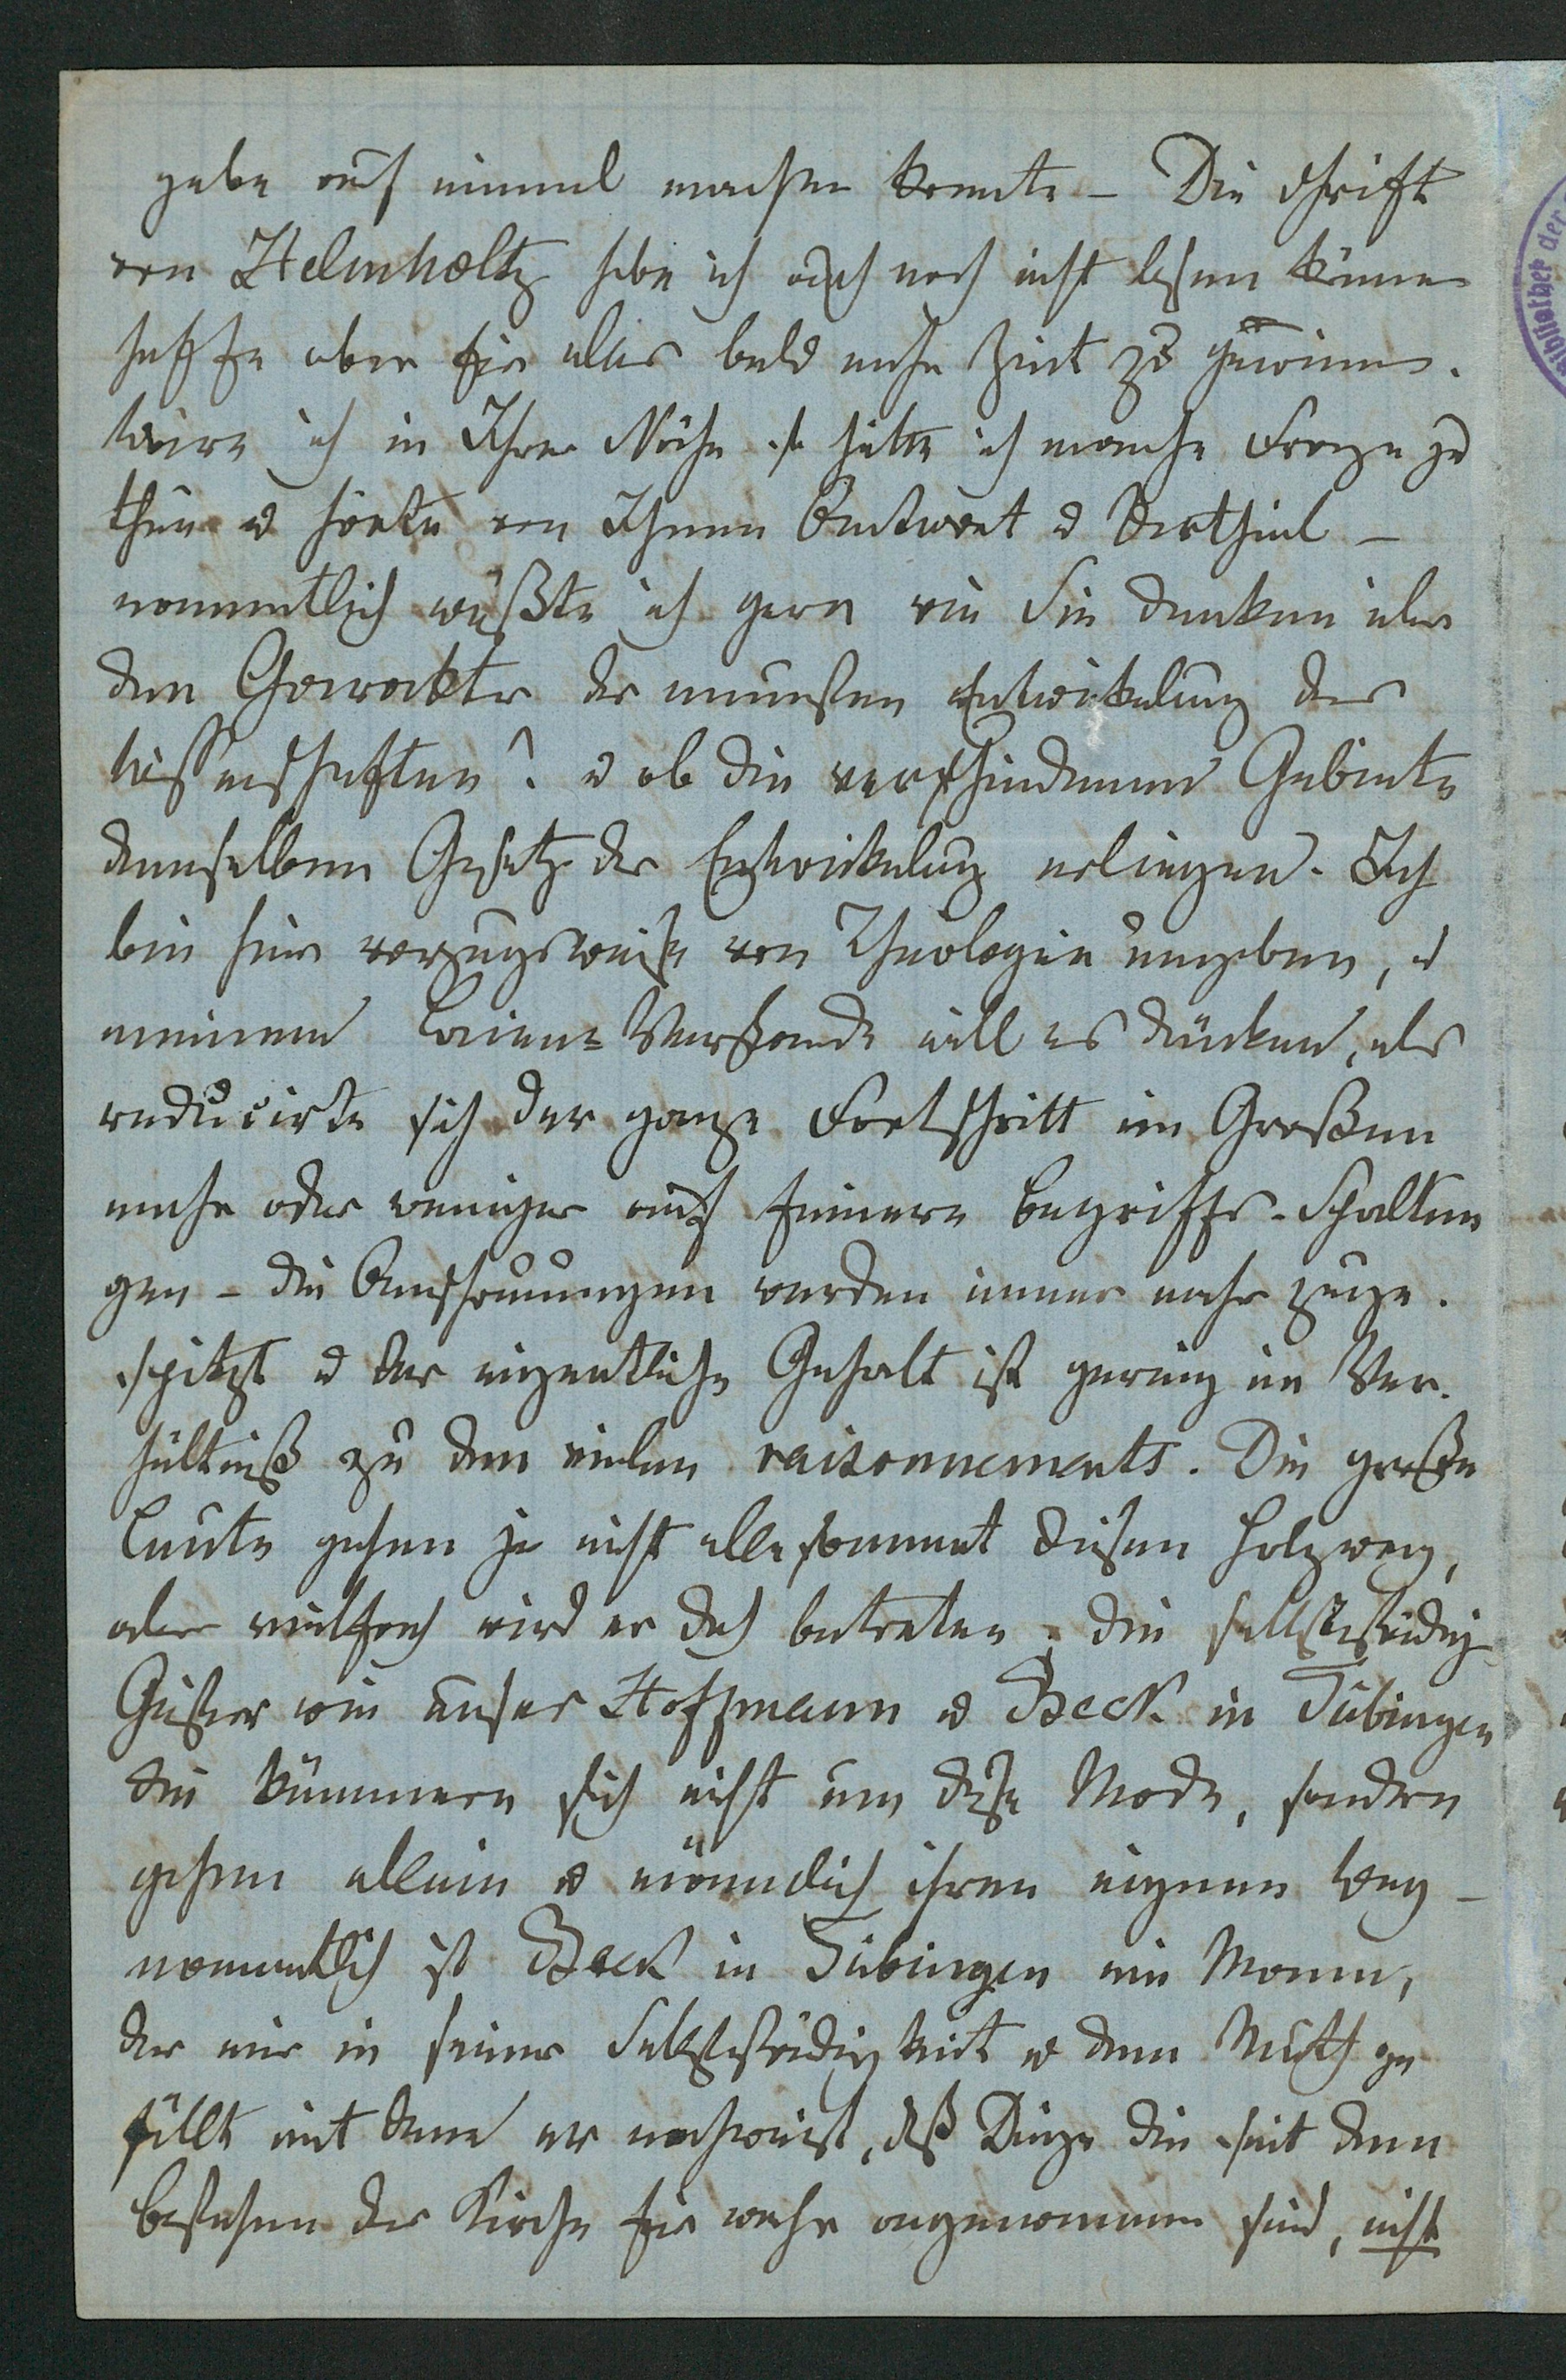 gabe auf einmal machen konnte – Die Schrift
von Helmholtz habe ich auch noch nicht lesen können
hoffe aber für alles bald mehr Zeit zu gewinnen.
Wäre ich in Ihrer Nähe so hätte ich manche Frage zu
thun u hörte von Ihnen Antwort u Urtheil –
namentlich wüßte ich gern wie Sie denken über
den Charakter der neuesten Entwickelung der
Wissenschaften? u ob die verschiedenen Gebiete
demselben Gesetz der Entwickelung erliegen. Ich
bin hier vorzugsweise von Theologie umgeben, u
meinem Laien-Verstande will es dünken, als
reducirte sich der ganze Fortschritt im Großen
mehr oder weniger auf feinere Begriffs-Spaltun
gen – die Anschauungen werden immer mehr zuge-
spitzt u der eigentliche Gehalt ist gering im Ver-
hältniß zu den vielen raisonnements. Die große
Leute gehen ja nicht allesammt diesen Holzweg,
aber vielfach wird er doch betreten; die selbstständig
Geister wie unser Hoffmann u Beck in Tübingen
die kümmern sich nicht um diese Mode, sondern
gehen allein u männlich ihren eigenen Weg –
namentlich ist Beck in Tübingen ein Mann,
der mir in seiner Selbstständigkeit u dem Muth ge
fällt mit dem er nachweist, daß Dinge die seit dem
Bestehen der Kirche für wahr angenommen sind, nicht
Bibliothek der